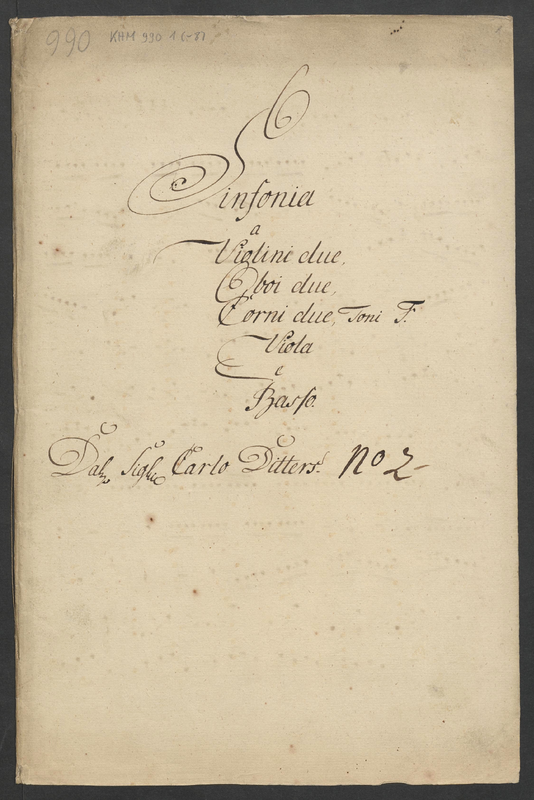 990 KHM 990 1(-8)
Sinfonia
a
Violini due.
Oboi due,
Corni due, Toni F.
Viola
e
Basso.
Dal Sigl: Carlo Ditters. No 2